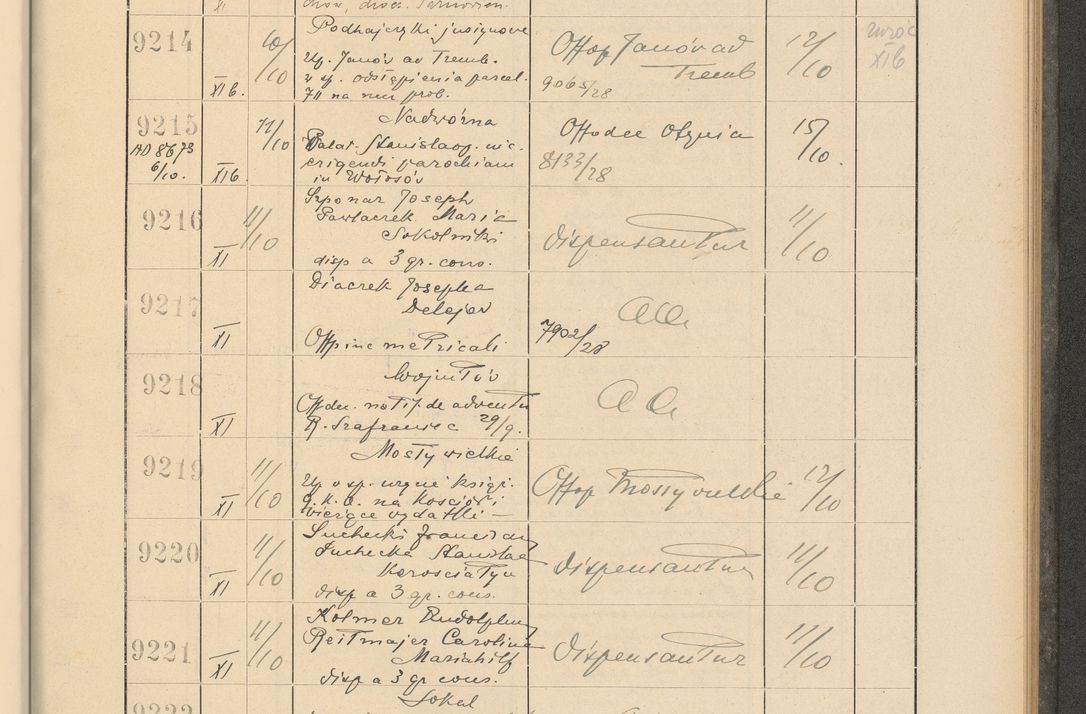 XI
9214
10/10
XI b.
Podhajczyki justynowe
Up. Janów ad Tremb.
w sp. odstąpienia parcel.
711 na prob.
Offop Janów ad
Tremb
9065/28
12/10
zwróc
XI b
9215
AD 8673
6/10.
XI b.
11/10
Nadwórna
Palat. Stanislaop. nic.
erigendi parochiam
in Wołosów
Offodec Otynia
8133/28
15/10.
9216
XI
11/10
Szponar Joseph
Pawlaczek Maria
Sokolniki
disp a 3 gr. cons.
dispensantur
11/10
9217
XI
Diaczek Josepha
Delejow
Offp inc metricali
aa
7902/28
9218
XI
Wojniłów
Offdec. notif. de adventu
R. Szafraniec 29/9.
aa
9219
XI
11/10
Mosty wielkie
Up w sp.
na kościół i
Offop Mosty wielkie
12/10
9220
XI
11/10
Suchecki
Suchecka
Korosciatyn
disp a 3 gr. cons.
dispensantur
11/10
9221
XI
11/10
Kolmer Rudolphus
Reitmajer Carolina
Mariahilf
disp a 3 gr cons.
dispensantur
11/10
9222
Sokal